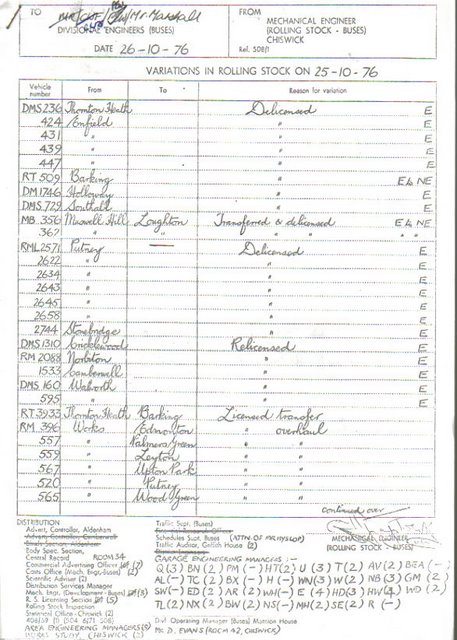 TO
Mr Marshall
DIVISIONAL ENGINEERS (BUSES)
DATE 26-10-76
FROM
MECHANICAL ENGINEER
(ROLLING STOCK - BUSES)
CHISWICK
Ref. 508/1
VARIATIONS IN ROLLING STOCK ON 25-10-76
Vehicle number From To Reason for variation
DMS 236 Thornton Heath Delicensed E
424 Enfield " E
431 " " E
439 " " E
447 " " E
RT 509 Barking " E & NE
DM 1746 Holloway " E
DMS 729 Southall " E
MB 356 Muswell Hill Loughton Transferred & delicensed E & NE
367 " " " " " "
RML 2571 Putney — Delicensed E
2622 " " E
2634 " " E
2643 " " E
2645 " " E
2658 " " E
2744 Stonebridge " E
DMS 1310 Cricklewood Relicensed E
RM 2088 Norbiton " E
1533 Camberwell " E
DMS 160 Walworth " E
595 " " E
RT 3933 Thornton Heath Barking Licensed transfer
RM 396 Works Edmonton " overhaul
557 " Palmers Green " "
559 " Leyton " "
567 " Upton Park " "
520 " Putney " "
565 " Wood Green " "
continued over
MECHANICAL ENGINEER
(ROLLING STOCK - BUSES)
DISTRIBUTION
Advert. Controller, Aldenham
Body Spec. Section,
Central Record ROOM 34
Commercial Advertising Officer (7)
Costs Office (Mech. Engr.-Buses) (2)
Scientific Adviser (2)
Distribution Services Manager
Mech. Engr. (Development - Buses) (3)
R. S. Licensing Section (5)
Rolling Stock Inspection
WORKS STUDY, CHISWICK
Traffic Supt. (Buses)
Schedules Supt. (Buses) (ATTN OF MR
Traffic Auditor, Griffith House (2)
GARAGE ENGINEERING MANAGERS :-
Q (3) BN (2) PM (-) HT (2) U (3) T (2) AV (2) BEA (-)
AL (-) TC (2) BX (-) H (-) WN (3) W (2) NB (3) GM (2)
SW (-) ED (2) AR (2) WH (-) E (4) HD (3) HW (4) WD (2)
TL (2) NX (2) BW (2) NS (-) MH (2) SE (2) R (-)
Divl Operating Manager (Buses) Manor House
Mr D. EVANS (ROOM 42, CHISWICK)